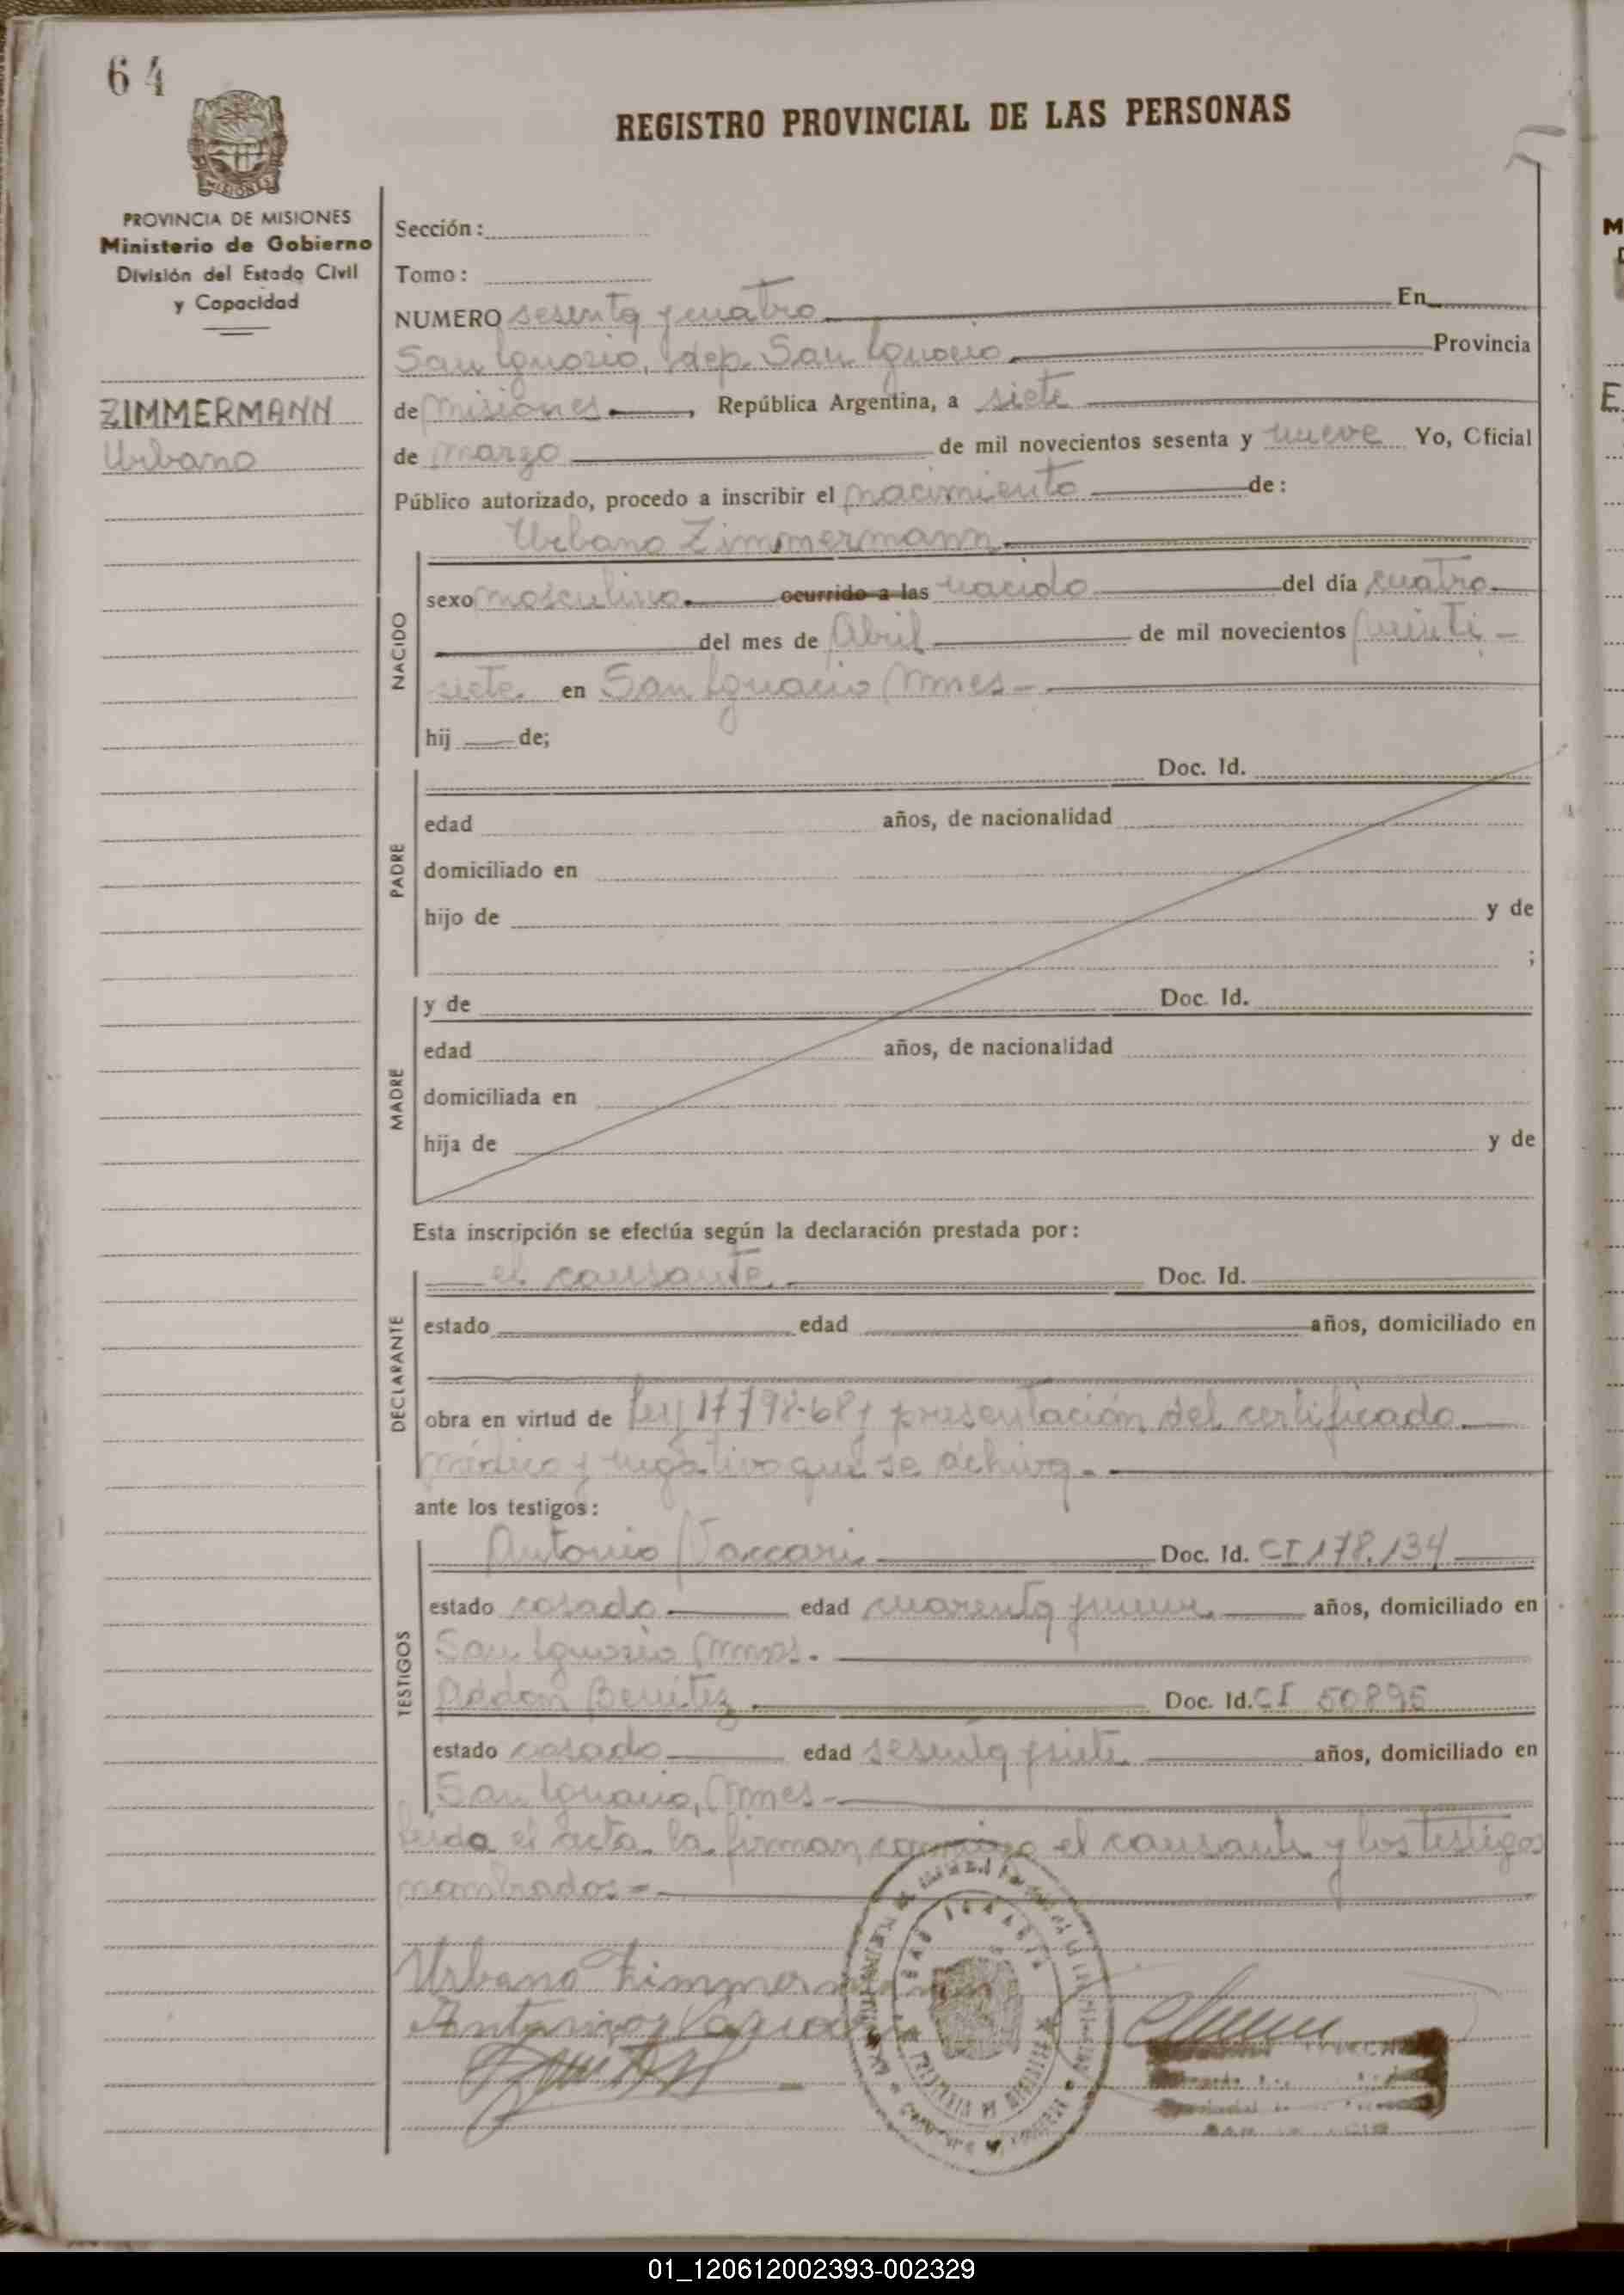 64
REGISTRO PROVINCIAL DE LAS PERSONAS
MISIONES
PROVINCIA DE MISIONES
Ministerio de Gobierno
División del Estado Civil
y Capacidad
ZIMMERMANN
Urbano
Sección:
Tomo:
NUMERO sesenta y cuatro En
San Ignacio, dep. San Ignacio Provincia
de Misiones, República Argentina, a siete
de marzo de mil novecientos sesenta y nueve Yo, Oficial
Público autorizado, procedo a inscribir el nacimiento de:
Urbano Zimmermann
NACIDO
sexo masculino ocurrido a las nacido del día cuatro
del mes de Abril de mil novecientos veinti-
siete en San Ignacio Mnes-
hij de;
PADRE
Doc. Id.
edad años, de nacionalidad
domiciliado en
hijo de y de
;
MADRE
y de Doc. Id.
edad años, de nacionalidad
domiciliada en
hija de y de
Esta inscripción se efectúa según la declaración prestada por:
DECLARANTE
el causante Doc. Id.
estado edad años, domiciliado en
obra en virtud de ley 17798-68 y presentación del certificado
médico y negativo que se achiva.-
ante los testigos:
TESTIGOS
Antonio Vaccari Doc. Id. CI 178.134
estado casado edad cuarenta y nueve años, domiciliado en
San Ignacio Mnes.
Benitez Doc. Id. CI 50895
estado casado edad sesenta y siete años, domiciliado en
San Ignacio, Mnes-
leida el acta la firman conmigo el causante y los testigos
nombrados=-
Urbano Zimmermann
Antonio Vaccari
SAN IGNACIO
PROVINCIA DE MISIONES
01_120612002393-002329